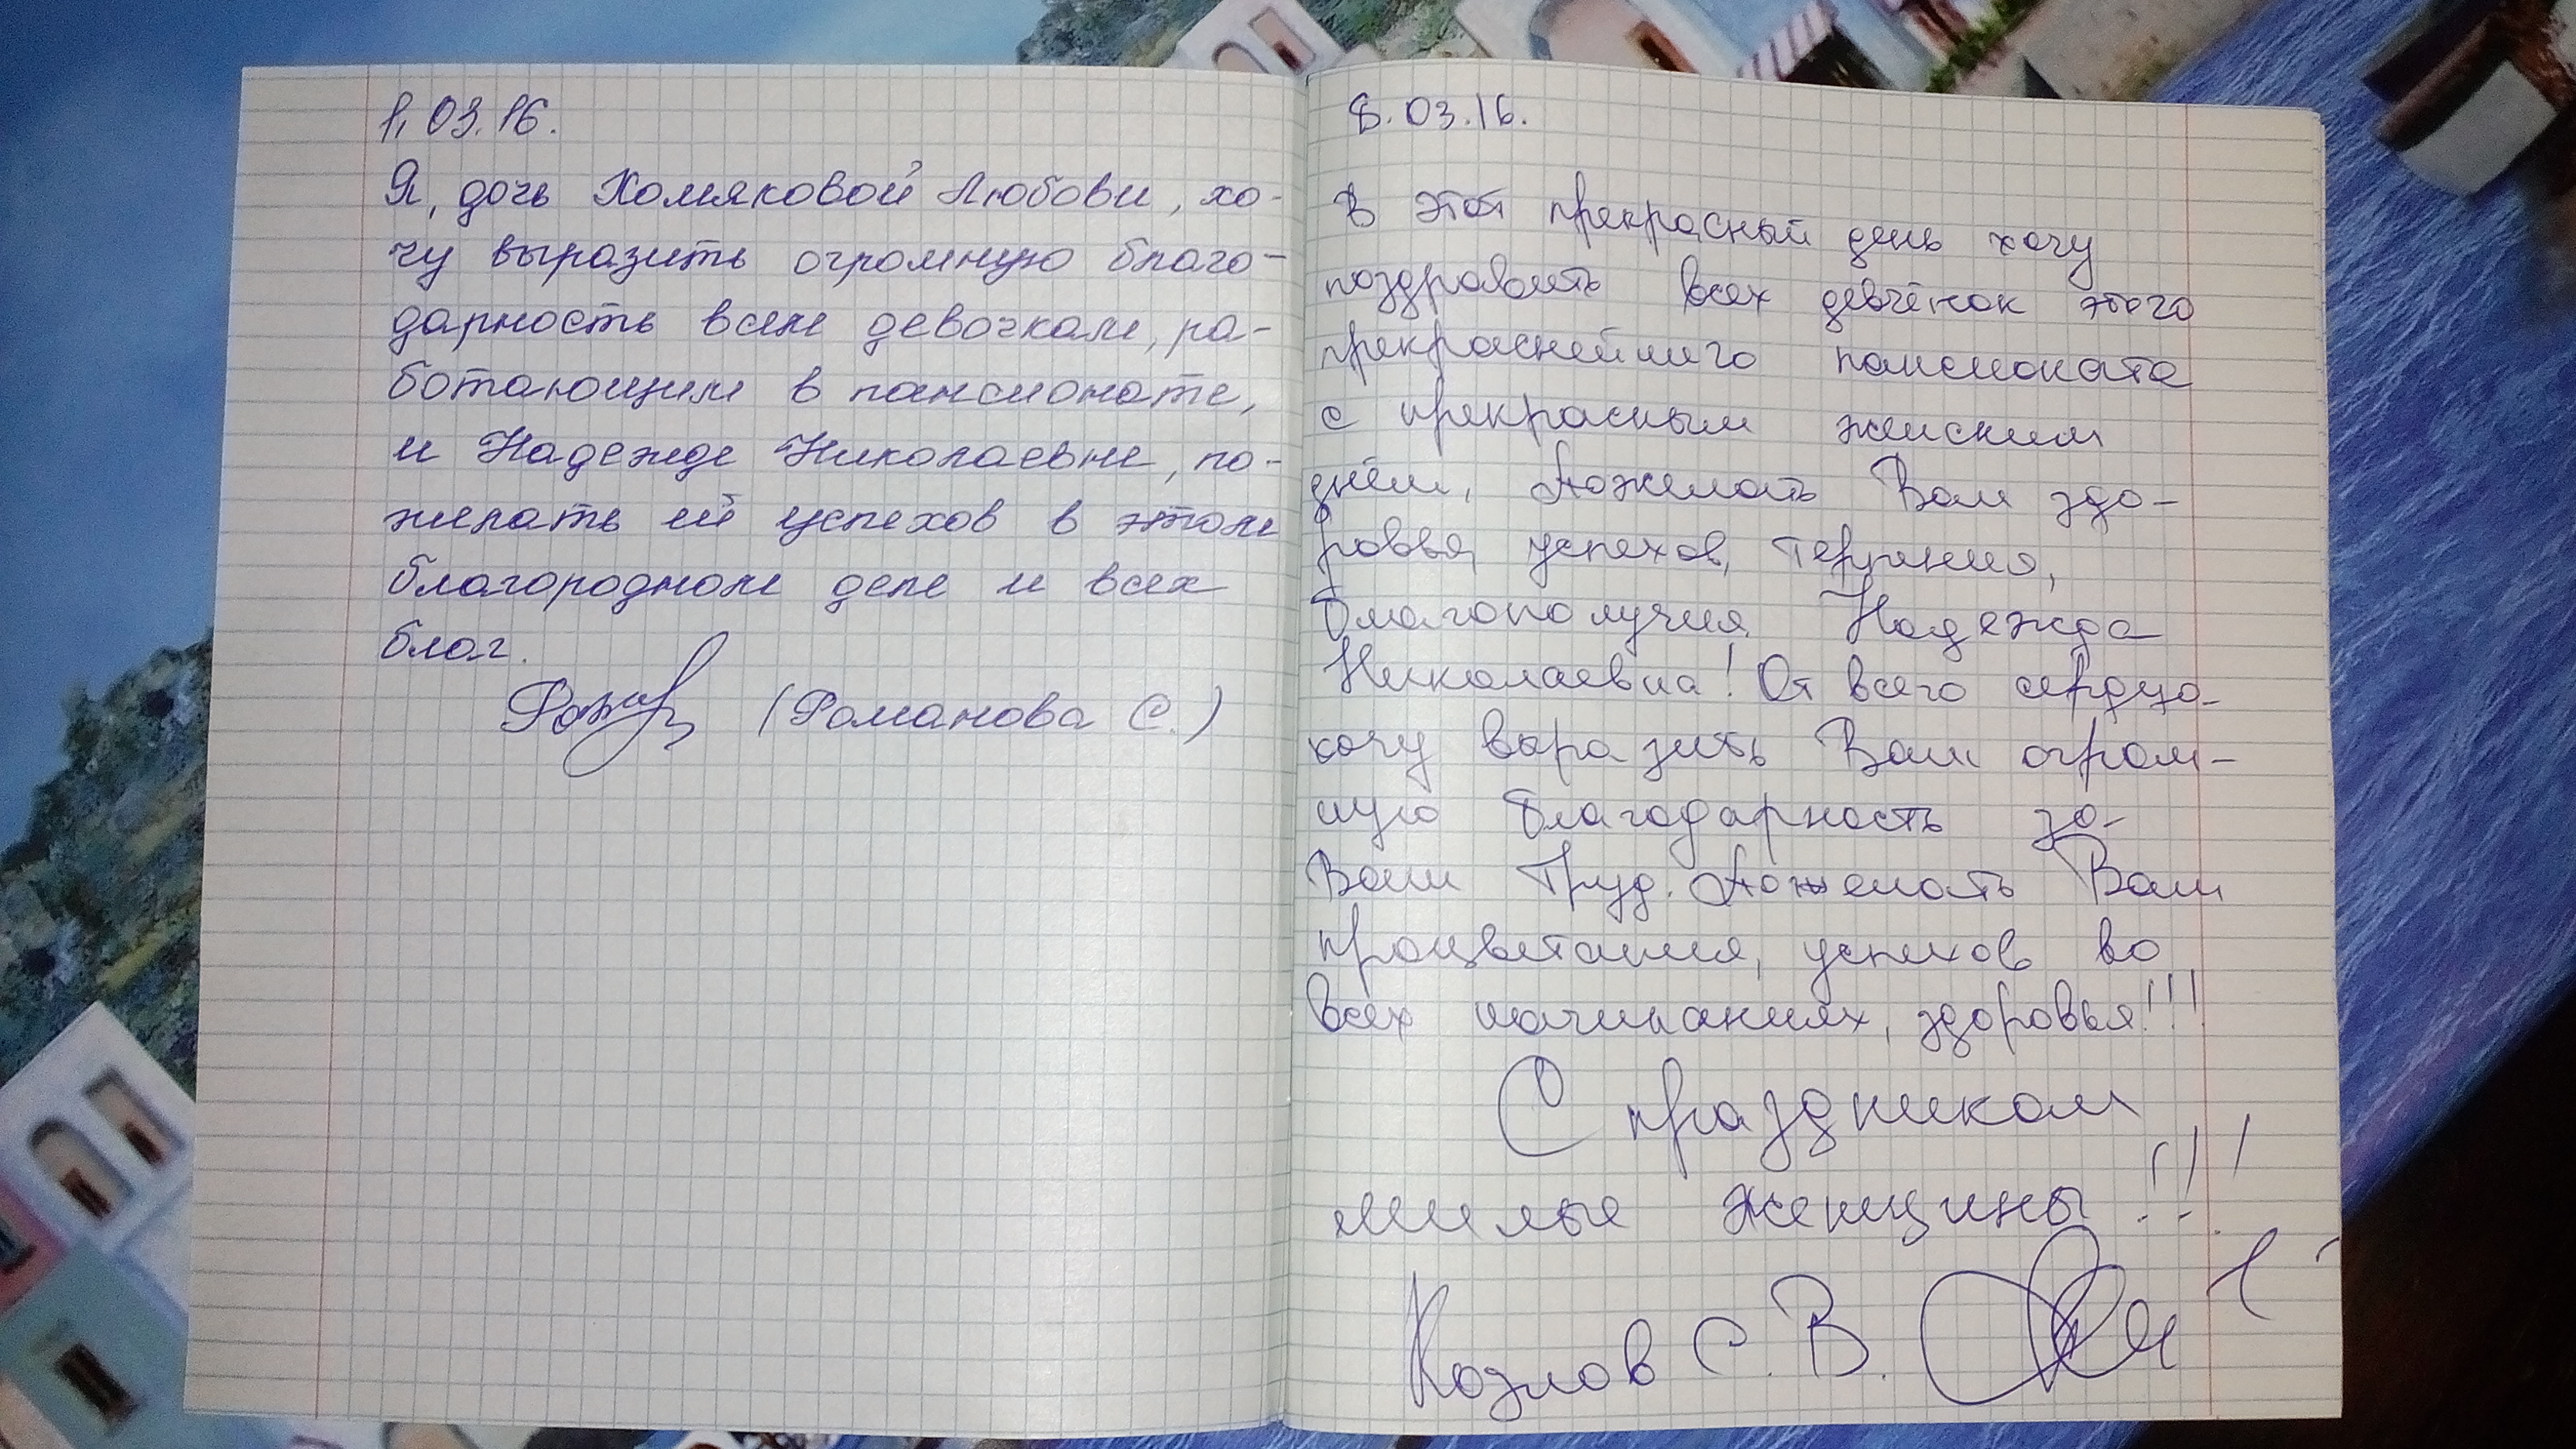 1,03.16.
Я, дочь Хомяковой Любови, хо-
чу выразить огромную благо-
дарность всем девочкам, ра-
ботающим в пансионате,
и Надежде Николаевне, по-
желать ей успехов в этом
благородном деле и всех
благ.
(Романова С.)
8.03.16.
В этот прекрасный день хочу
поздравить всех девчёнок этого
прекраснейшего пансионата
с прекрасным женским
днём, Пожелать Вам здо-
ровья, успехов, терпения,
благополучия. Надежда
Николаевна! От всего сердца
хочу выразить Вам огром-
ную благодарность за
Ваш Труд. Пожелать Вам
процветания, успехов во
всех начинаниях, здоровья!!!
С праздником
милые женщины!!!
Козлов С.В.